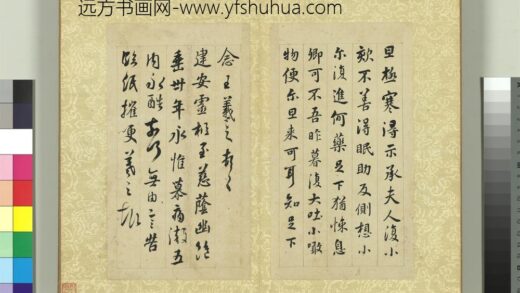 远方书画网-www.yfshuhua.com
旦極寒得示承夫人復小
欬不善得眠助反側想小
尔復進何藥足下猶悚息
卿可不吾昨暮復大吐小噉
物便尔旦来可耳知足下
念王羲之頓首
建安靈柩至慈蔭幽絶
垂卅年永惟慕痛徹五
内永酷奈何無由言告
臨紙摧哽羲之頓首